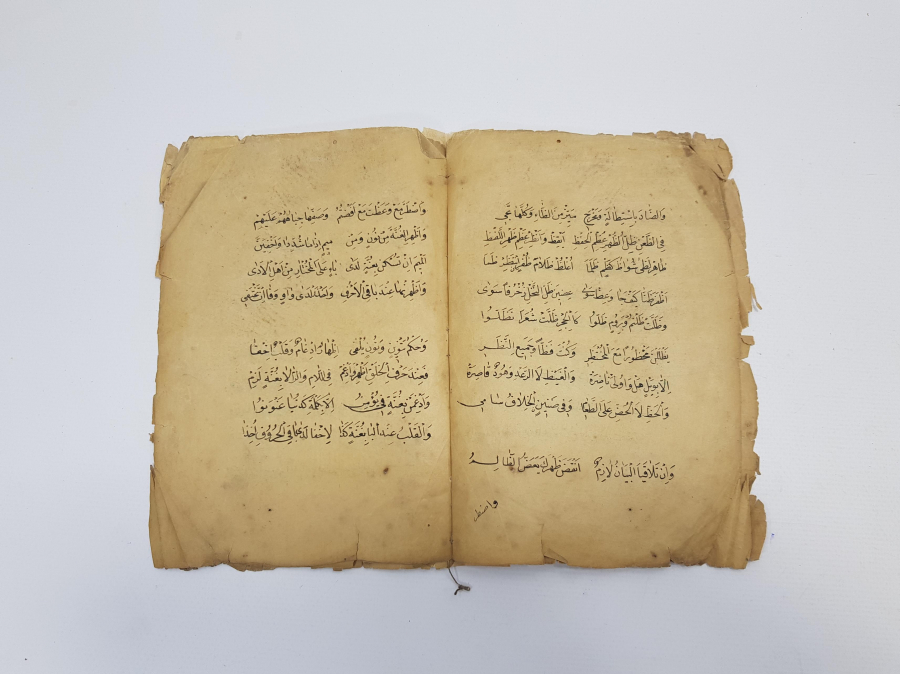 وَالضَّادَ بِاسْتِطَالَةٍ وَمَخْرَجِ مَيِّزْ مِنَ الظَّاءِ وَكُلُّهَا تَجِي
فِي الظَّعْنِ ظِلِّ الظُّهْرِ عُظْمِ الْحِفْظِ اَيْقِظْ وَانْظُرْ عَظْمِ ظَهْرِ اللَّفْظِ
ظَاهِرْ لَظَى شُوَاظِ كَظْمٍ ظَلَمَا اُغْلُظْ ظَلَامَ ظُفْرٍ انْتَظِرْ ظَمَا
اَظْفَرَ ظَنًّا كَيْفَ جَا وَعِظْ سِوَى عِضِينَ ظَلَّ النَّحْلِ زُخْرُفًا سِوَى
وَظَلْتَ ظَلْتُمْ وَبِرُومٍ ظَلُّوا كَالْحِجْرِ ظَلَّتْ شُعَرَا نَظَلُّ
يَظْلَلْنَ مَحْظُورًا مَعَ الْمُحْتَظِرِ وَكُنْتَ فَظًّا وَجَمِيعِ النَّظَرِ
اِلَّا بِوَيْلٍ هَلْ وَاُولَى نَاضِرَةْ وَالْغَيْظِ لَا الرَّعْدِ وَهُودٍ قَاصِرَةْ
وَالْحَظِّ لَا الْحَضِّ عَلَى الطَّعَامِ وَفِي ضَنِينٍ الْخِلَافُ سَامِي
وَاِنْ تَلَاقَيَا الْبَيَانُ لَازِمٌ اَنْقَضَ ظَهْرَكَ يَعَضُّ الظَّالِمُ
واضطر
وَاضْطُرَّ مَعْ وَعَظْتَ مَعْ اَفَضْتُمْ وَصَفِّ هَا جِبَاهُهُمْ عَلَيْهِمْ
وَاَظْهِرِ الْغُنَّةَ مِنْ نُونٍ وَمِنْ مِيمٍ اِذَا مَا شُدِّدَا وَاَخْفِيَنْ
اَلْمِيمَ اِنْ تَسْكُنْ بِغُنَّةٍ لَدَى بَاءٍ عَلَى الْمُخْتَارِ مِنْ اَهْلِ الْاَدَى
وَاَظْهِرَنْهَا عِنْدَ بَاقِي الْاَحْرُفِ وَاحْذَرْ لَدَى وَاوٍ وَفَا اَنْ تَخْتَفِي
وَحُكْمُ تَنْوِينٍ وَنُونٍ يُلْفَى اِظْهَارٌ اِدْغَامٌ وَقَلْبٌ اِخْفَا
فَعِنْدَ حَرْفِ الْحَلْقِ اَظْهِرْ وَادَّغِمْ فِي اللَّامِ وَالرَّا لَا بِغُنَّةٍ لَزِمْ
وَاَدْغِمَنْ بِغُنَّةٍ فِي يُومِنُ اِلَّا بِكِلْمَةٍ كَدُنْيَا عَنْوَنُوا
وَالْقَلْبُ عِنْدَ الْبَا بِغُنَّةٍ كَذَا لِاخْفَا لَدَى بَاقِي الْحُرُوفِ اُخِذَا